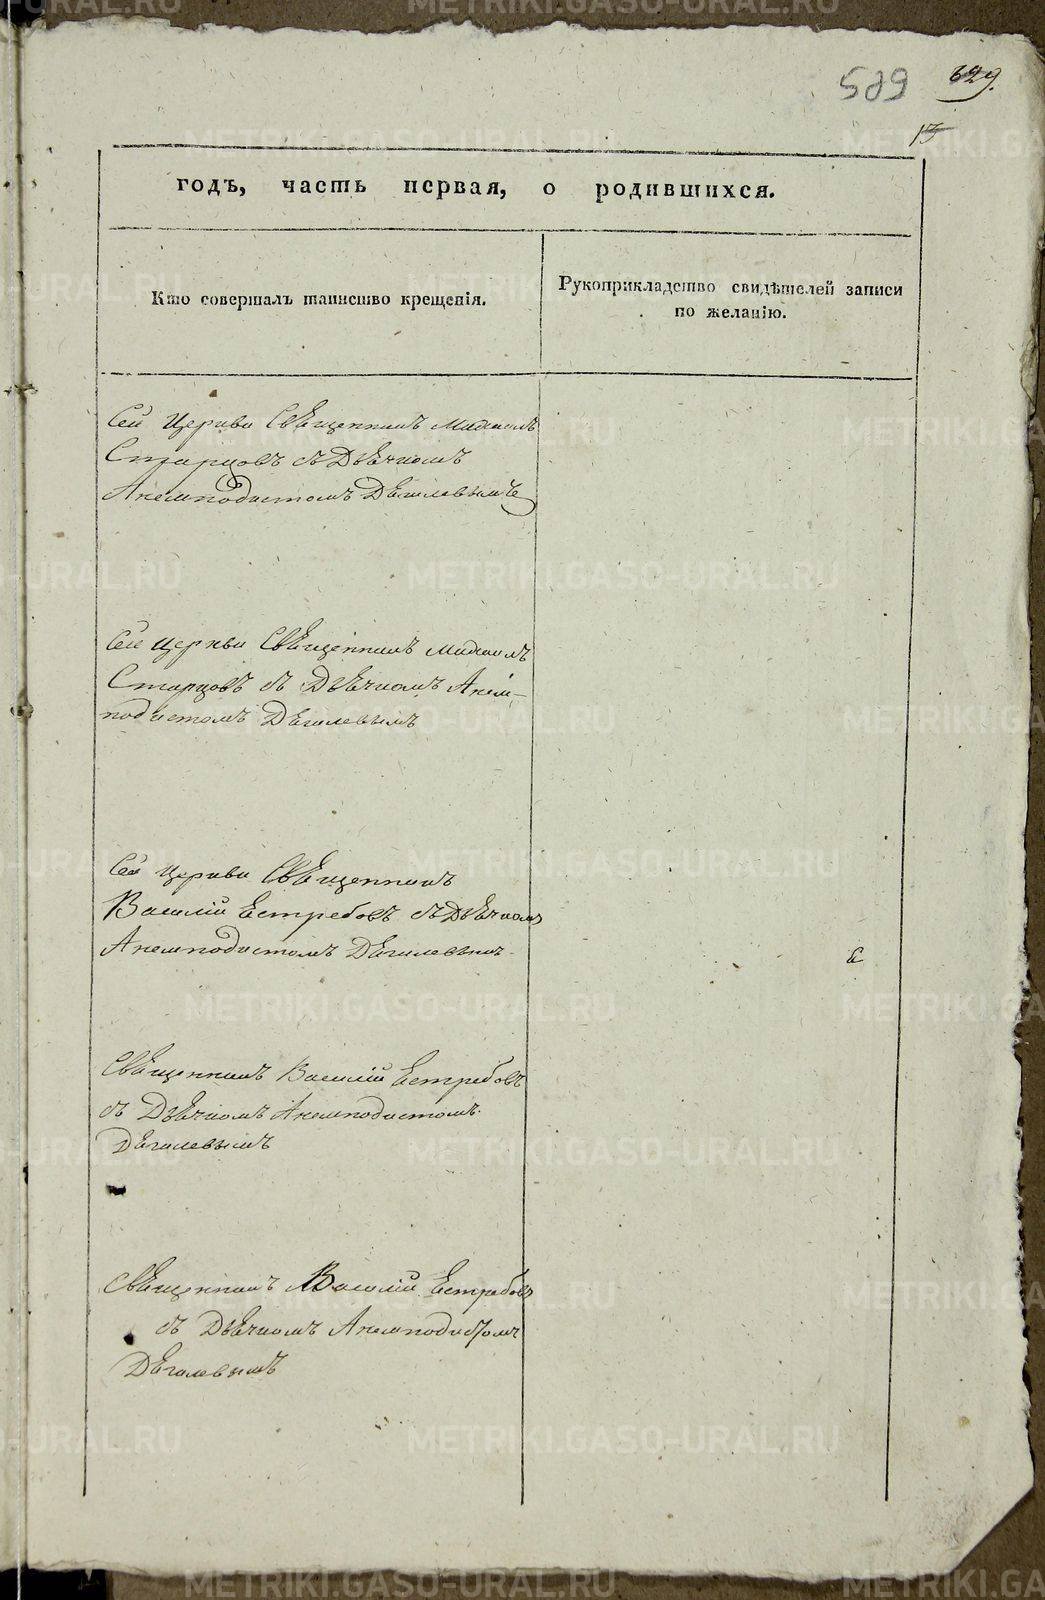 589 629.
13
годъ, часть первая, о родившихся.
Кто совершалъ таинство крещенія.
Рукоприкладство свидѣтелей записи
по желанію.
Сей Церкви Священникъ Михаилъ
Старцовъ съ Дьячкомъ
Анемподистомъ Дягилевымъ
Сей Церкви Священникъ Михаилъ
Старцовъ съ Дьячкомъ Анем-
подистомъ Дягилевымъ
Сей Церкви Священникъ
Василій Ястребовъ съ Дьячкомъ
Анемподистомъ Дягилевымъ
Священникъ Василій Ястребовъ
съ Дьячкомъ Анемподистомъ
Дягилевымъ
Священникъ Василій Ястребовъ
съ Дьячкомъ Анемподистомъ
Дягилевымъ
METRIKI.GASO-URAL.RU